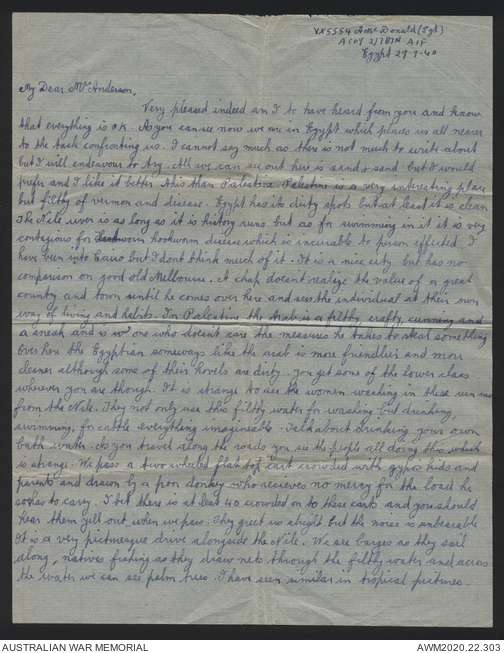 VX5554 A Mc Donald (Sgt)
A Coy 2/7 BTN AIF
Egypt 29-9-40
My Dear Mr Anderson,
Very pleased indeed am I to have heard from you and know
that everything is OK. As you can see now we are in Egypt which places us all nearer
to the task confronting us. I cannot say much as there is not much to write about
but I will endeavour to try. All we can see out here is sand & sand but I would
prefer and I like it better this than Palestine. Palestine is a very interesting place
but filthy of vermon and disease. Egypt has its dirty spots but at least it is clean
The Nile river is as long as it is history runs but as for swimming in it it is very
contagious for hookworm disease which is incurable to person effected. I
have been into Cairo but I dont think much of it. It is a nice city but has no
comparison on good old Melbourne. A chap doesn't realize the value of a great
country and town until he comes over here and sees the individual at their own
way of living and habits. In Palestine the Arab is a filthy, crafty, cunning and
a sneak and is one who doesn't care the measures he takes to steal something
Over here the Egyptian someways like the arab is more friendlier and more
cleaner although some of their hovels are dirty. You get some of the lower class
wherever you are though. It is strange to see the women washing in these
from the Nile. They not only use this filthy water for washing but drinking,
swimming, for cattle everything imagineable. Talk about drinking your own
bath water. As you travel along the roads you see the people all doing this which
is strange. We pass a two wheeled flat top cart crowded with gypos kids and
parents and drawn by a poor donkey who recieves no mercy for the load he
has to carry. I bet there is at least 40 crowded on to these carts and you should
hear them yell out when we pass. They greet us alright but the noise is unbearable
It is a very picturesque drive alongside the Nile. We see barges as they sail
along, natives fishing as they draw nets through the filthy water and across
the water we can see palm trees. I have seen similar in tropical pictures.
AUSTRALIAN WAR MEMORIAL
AWM2020.22.303